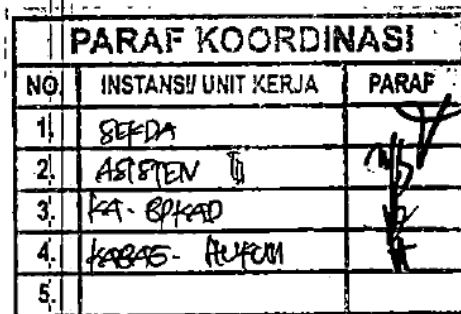 PARAF KOORDINASI
NO. INSTANSI/ UNIT KERJA PARAF
1. SEKDA
2. ASISTEN III
3. KA - BPKAD
4. KABAG - HUKUM
5.